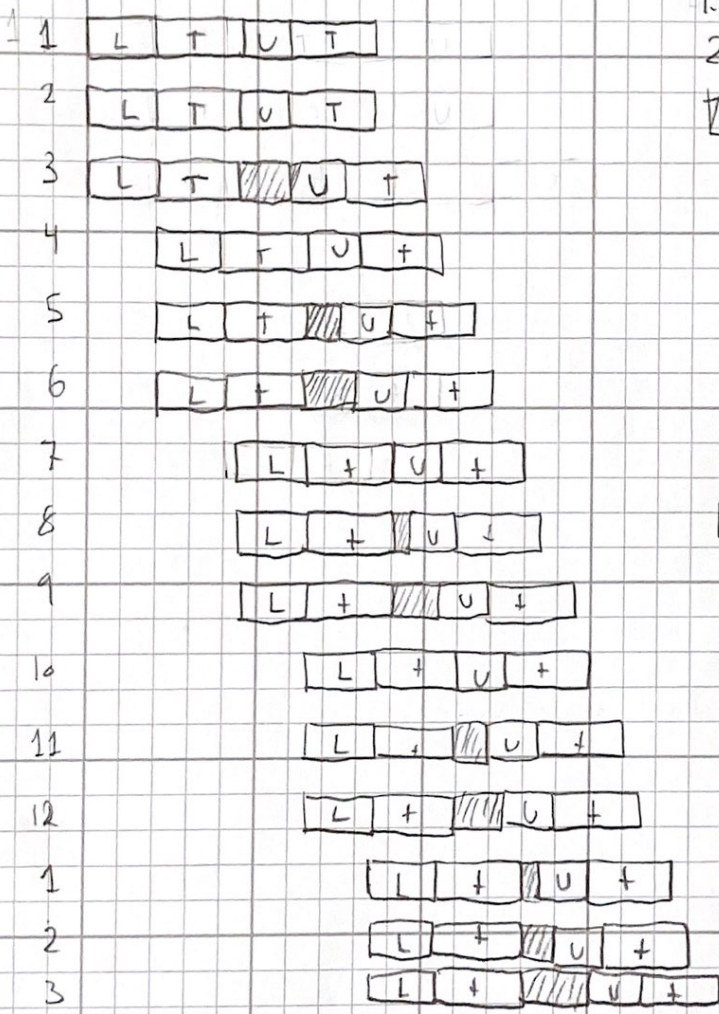 1 1 L T U T
2 L T U T
3 L T U T
4 L T U t
5 L t U t
6 L t U t
7 L t U t
8 L t U t
9 L t U t
10 L t U t
11 L t U t
12 L t U t
1 L t U t
2 L t U t
3 L t U t